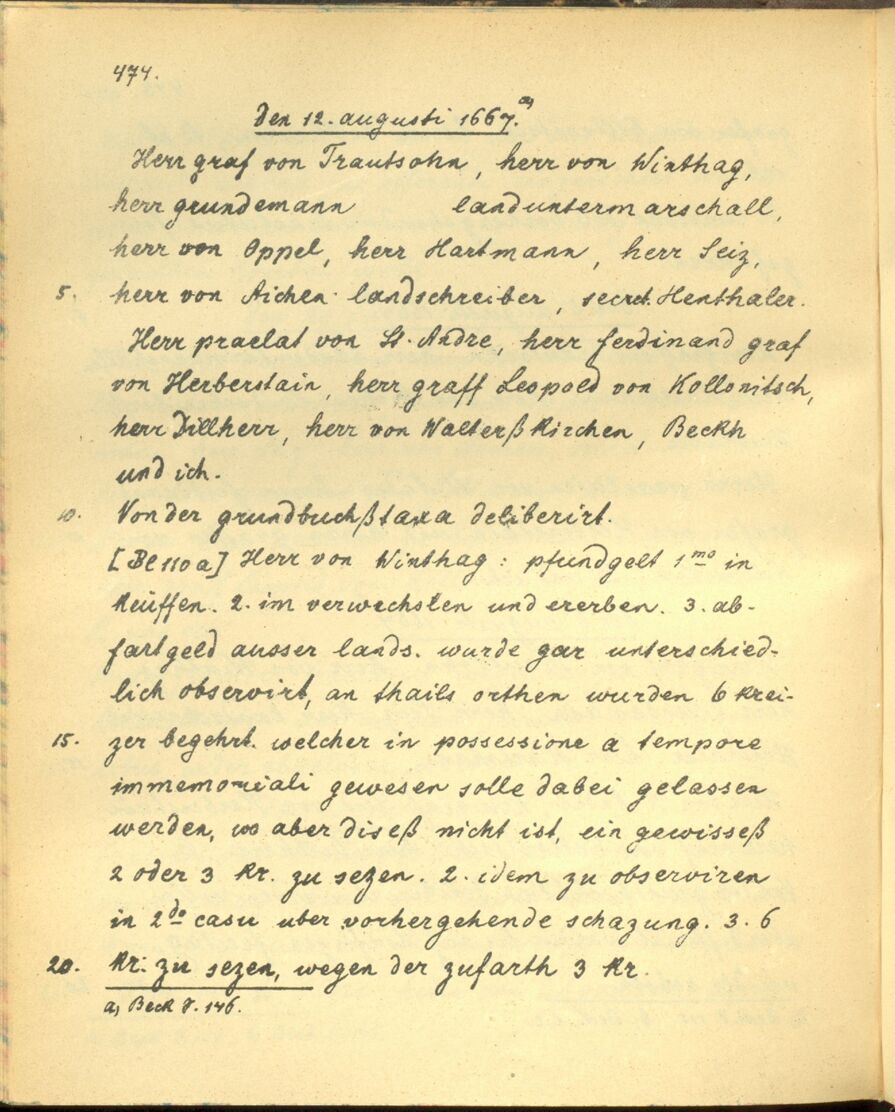 474.
den 12. augusti 1667.a)
Herr graf von Trautsohn, herr von Winthag,
herr grundemann landuntermarschall,
herr von Oppel, herr Hartmann, herr Seiz,
5. herr von Aichen landschreiber, secret. Henthaler.
Herr praelat von St. Andre, herr ferdinand graf
von Herberstain, herr graff Leopold von Kollonitsch,
herr Dillherr, herr von Walterßkirchen, Beckh
und ich.
10. Von der grundbuchßtaxa deliberirt.
[Bl 110 a] Herr von Winthag: pfundgelt 1mo in
keüffen. 2. im verwechslen und ererben. 3. ab-
fartgeld ausser lands. wurde gar unterschied-
lich observirt, an thails orthen wurden 6 krei-
15. zer begehrt. welcher in possessione a tempore
immemoriali gewesen solle dabei gelassen
werden, wo aber diseß nicht ist, ein gewisseß
2 oder 3 kr. zu sezen. 2. idem zu observiren
in 2do casu uber vorhergehende schazung. 3. 6
20. kr: zu sezen, wegen der zufarth 3 kr.
a) Beck S. 146.